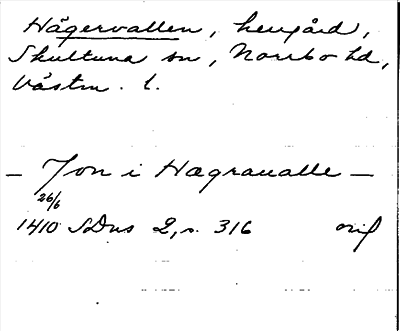 Hägervallen, hemgård,
Skultuna sn, Norrbo hd,
Västm. l.
— Jon i Hægraualle —
26/6
1410 SDns 2, s. 316 orig